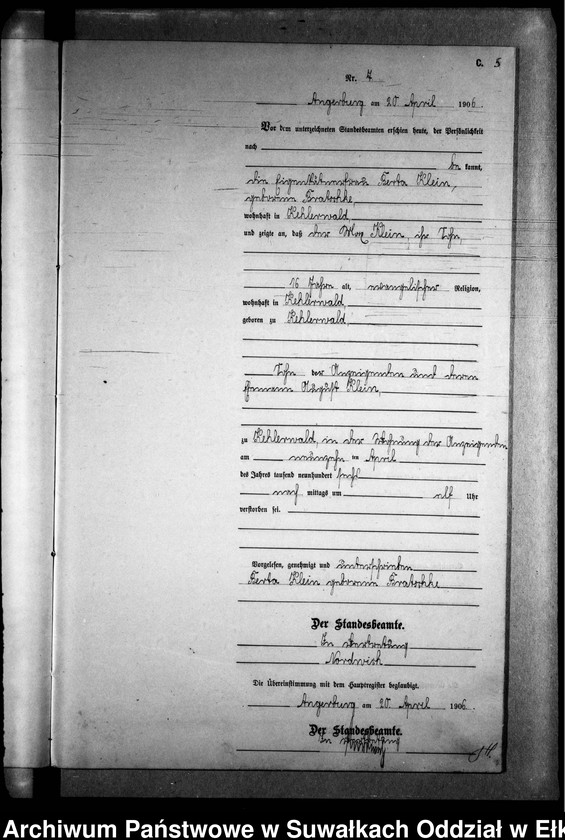 C. 5
Nr. 7
Angerburg am 20 April 1906.
Vor dem unterzeichneten Standesbeamten erschien heute, der Persönlichkeit
nach
be kannt,
die Eigenkätnerfrau Berta Klein,
geborene
wohnhaft in Kehlerwald
und zeigte an, daß der Max Klein, ihr Sohn,
16 Jahre alt, evangelischer Religion,
wohnhaft in Kehlerwald,
geboren zu Kehlerwald,
Sohn der Anzeigenden und deren
Ehemann August Klein,
zu Kehlerwald, in der Wohnung der Anzeigenden
am neunzehn ten April
des Jahres tausend neunhundert sechs
nach mittags um elf Uhr
verstorben sei.
Vorgelesen, genehmigt und unterschrieben
Berta Klein geborene
Der Standesbeamte.
In Vertretung
Nordwich
Die Übereinstimmung mit dem Hauptregister beglaubigt.
Angerburg am 20 April 1906.
Der Standesbeamte.
In Vertretung
Archiwum Państwowe w Suwałkach Oddział w Ełk